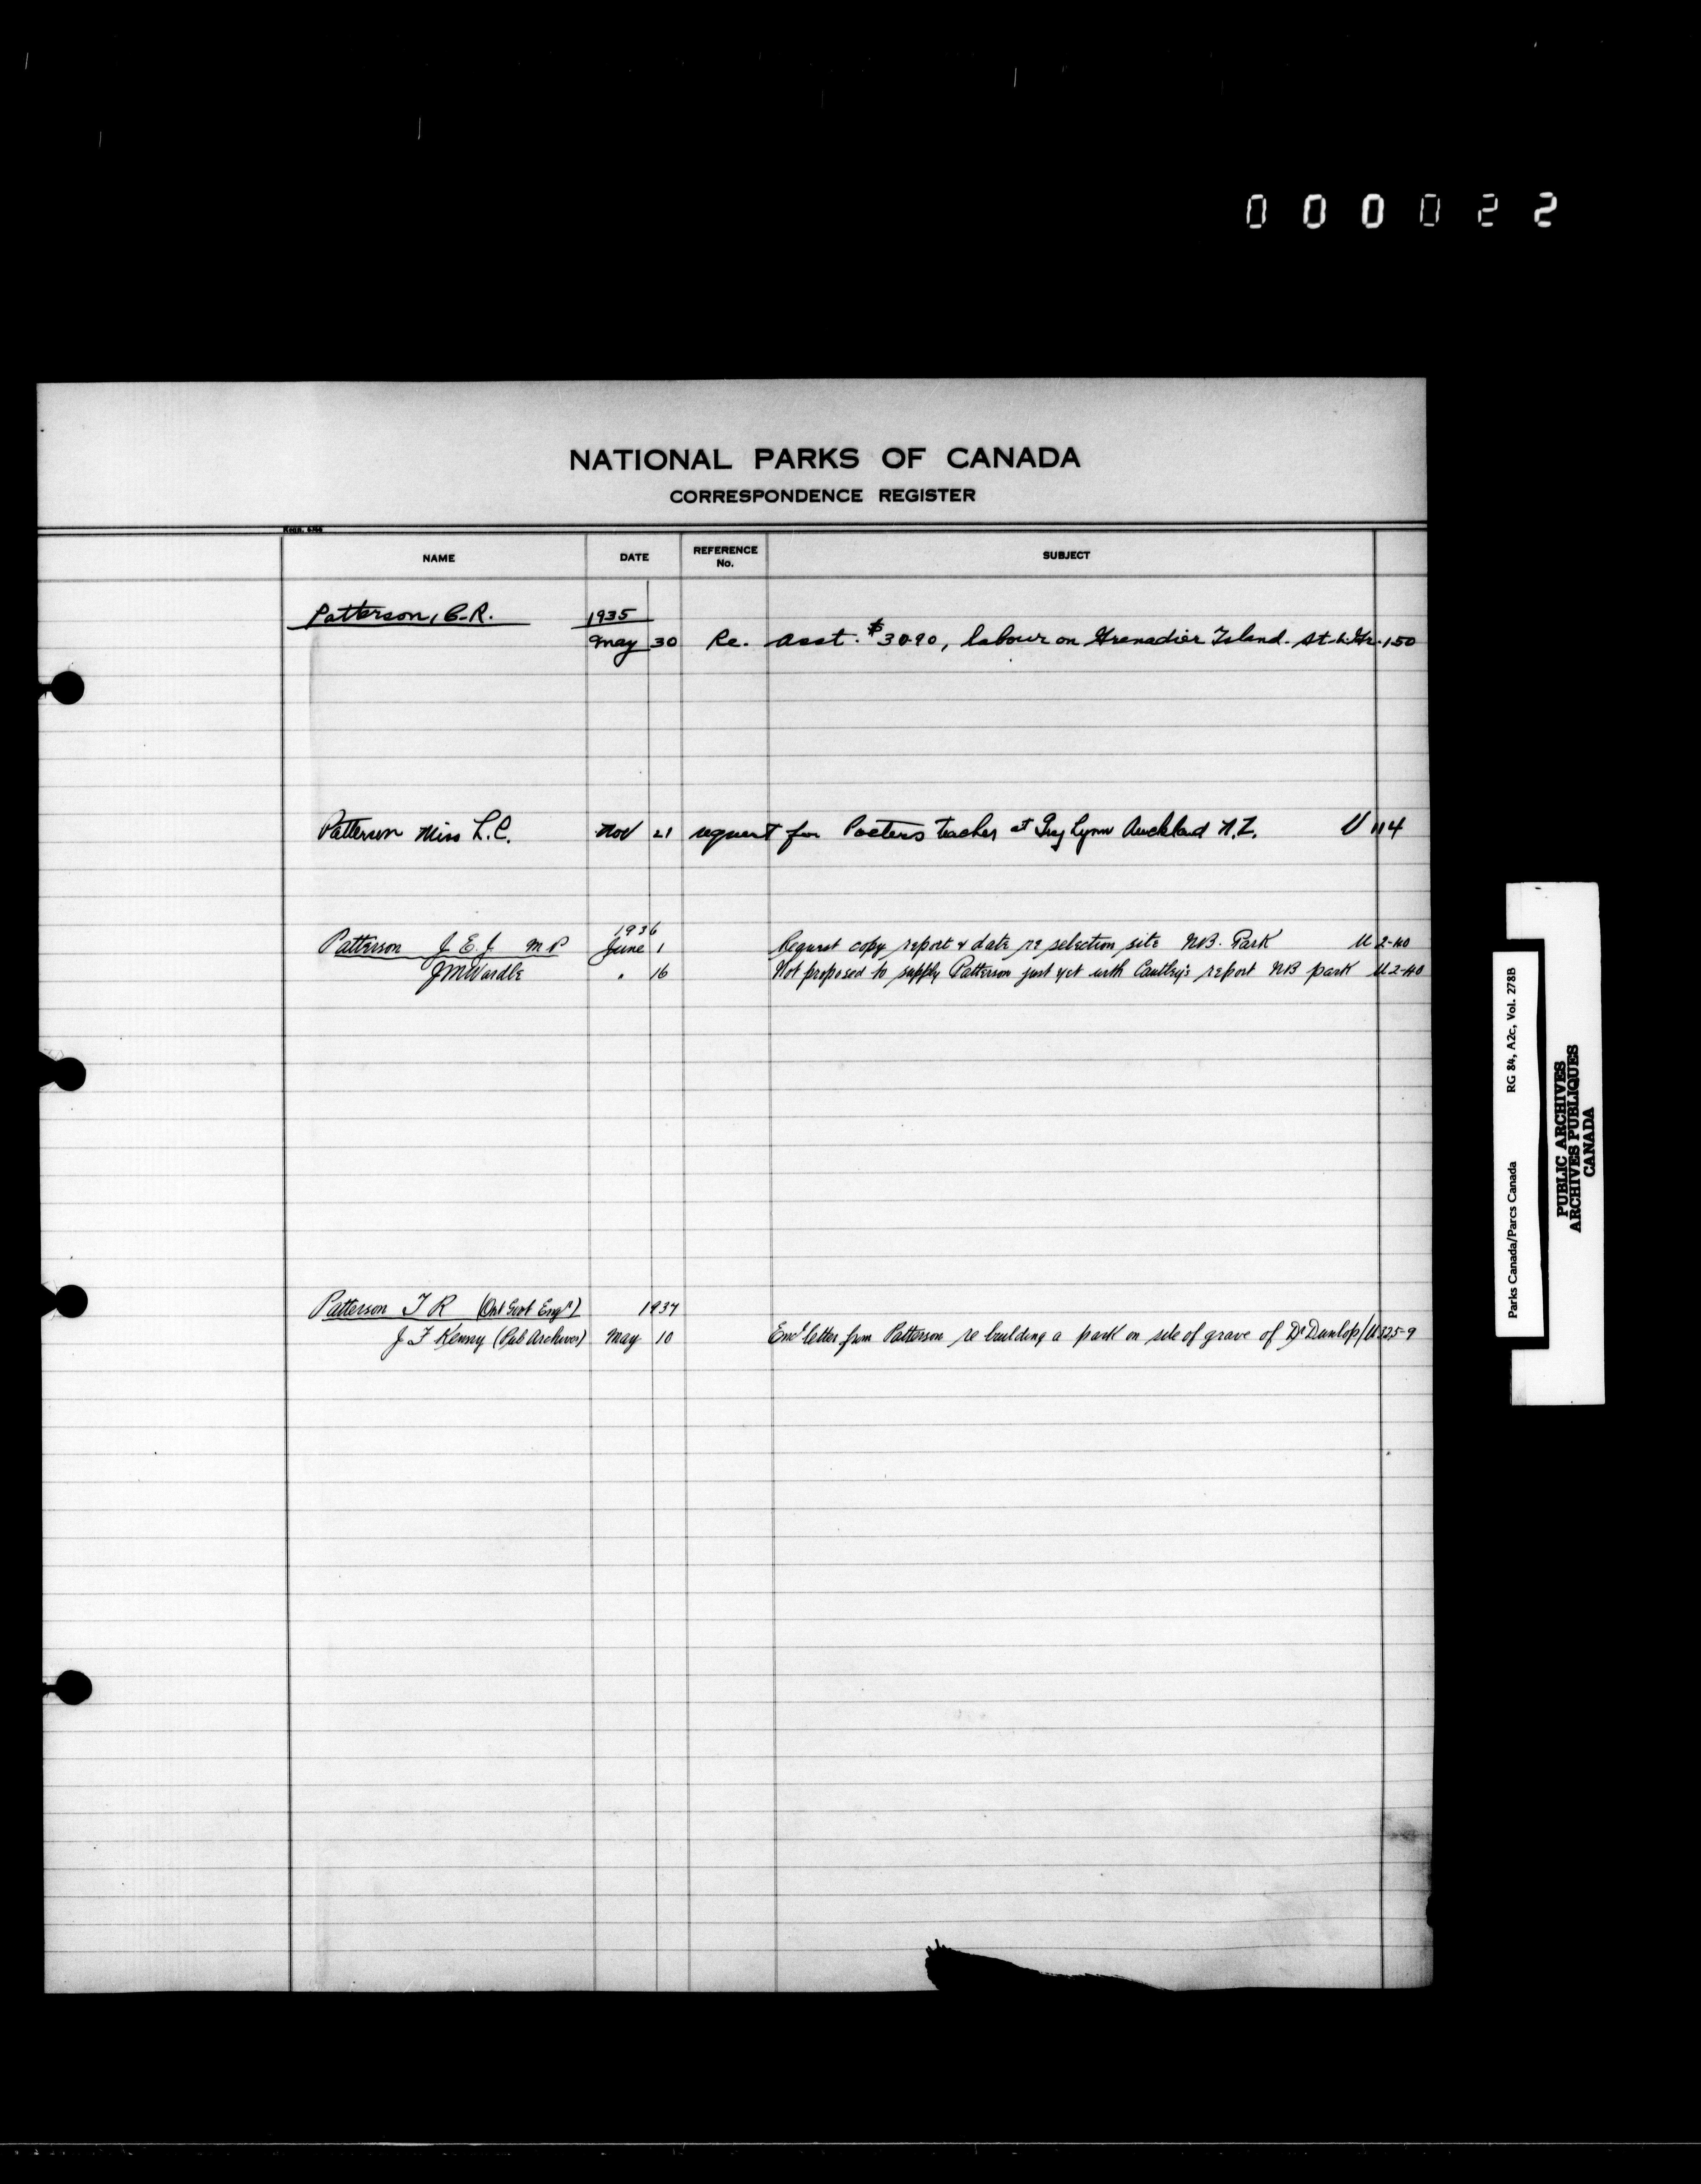 000022
NATIONAL PARKS OF CANADA
CORRESPONDENCE REGISTER
NAME DATE REFERENCE No. SUBJECT
Patterson, C.R. 1935
May 30 Re. Asst. $30.90, labour on Grenadier Island. St. L. 150
Patterson Miss L.C. Nov 21 request for Posters teacher at Grey Lynn Auckland N.Z. U 114
1936
Patterson J E. J. M P June 1 Request copy report & date re selection site N.B. Park U 2-40
J M Wardle " 16 Not proposed to supply Patterson just yet with Cautley's report NB park U 2-40
Patterson T R (Ont Govt Engr) 1937
J F Kenny (Pub Archives) May 10 Encl letter from Patterson re building a park on site of grave of Dr Dunlop / U 325-9
Parks Canada/Parcs Canada RG 84, A2c, Vol. 278B
PUBLIC ARCHIVES
ARCHIVES PUBLIQUES
CANADA